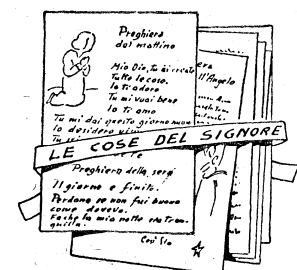 Preghiera
del mattino
Mio Dio, tu ài creato
Tutte le cose.
Io ti adoro
Tu mi vuoi bene
Io ti amo
Tu mi dai questo giorno
Io desidero
LE COSE DEL SIGNORE
Preghiera della sera
Il giorno è finito.
Perdona se non fui buono
come dovevo.
Fa che la mia notte sia tran-
quilla.
Così sia
ll'Angelo